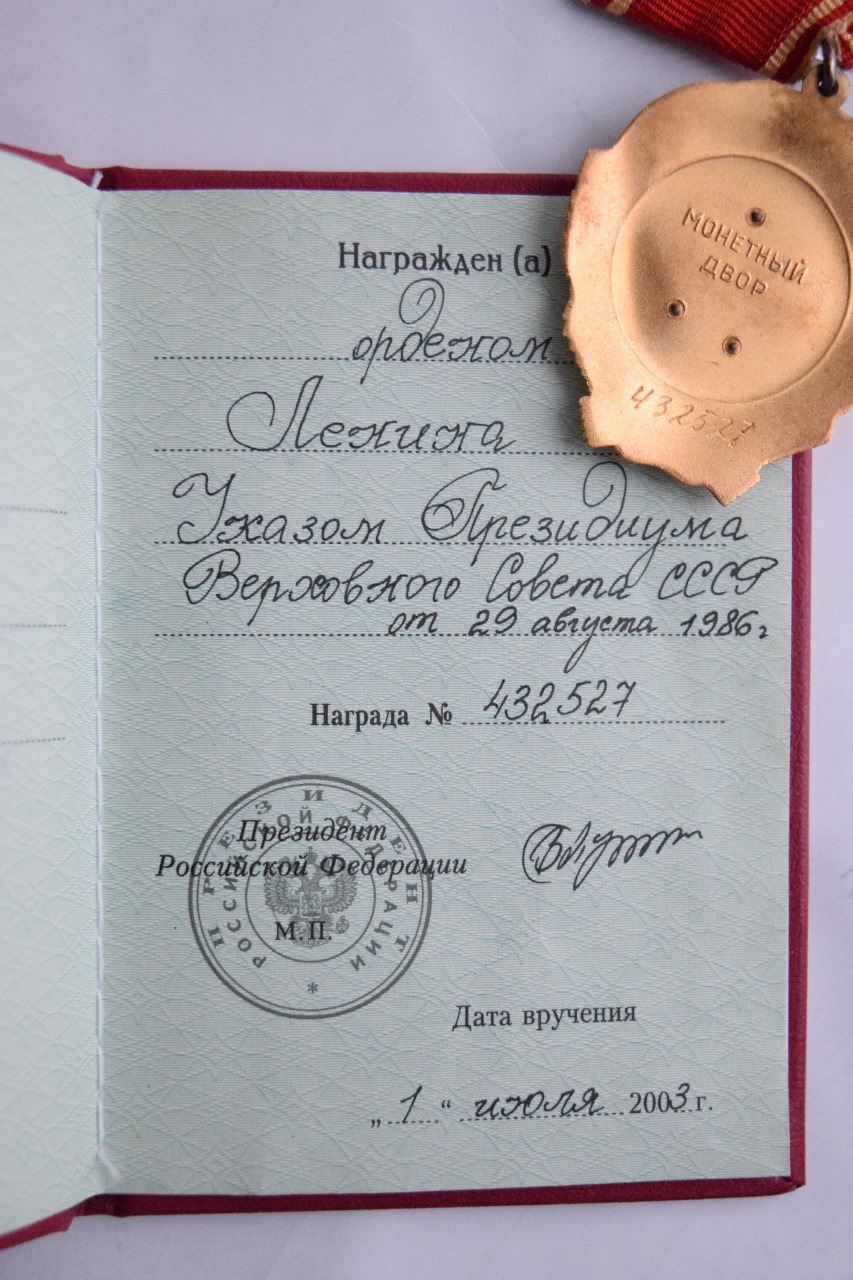 МОНЕТНЫЙ
ДВОР
432527
Награжден (а)
орденом
Ленина
Указом Президиума
Верховного Совета СССР
от 29 августа 1986 г
Награда № 432527
ПРЕЗИДЕНТ
РОССИЙСКОЙ ФЕДЕРАЦИИ
*
Президент
Российской Федерации
М.П.
Дата вручения
„ 1 “ июля 2003 г.